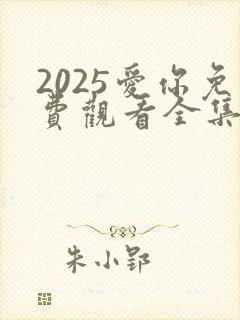 2025愛你免
費觀看全集
朱小郢